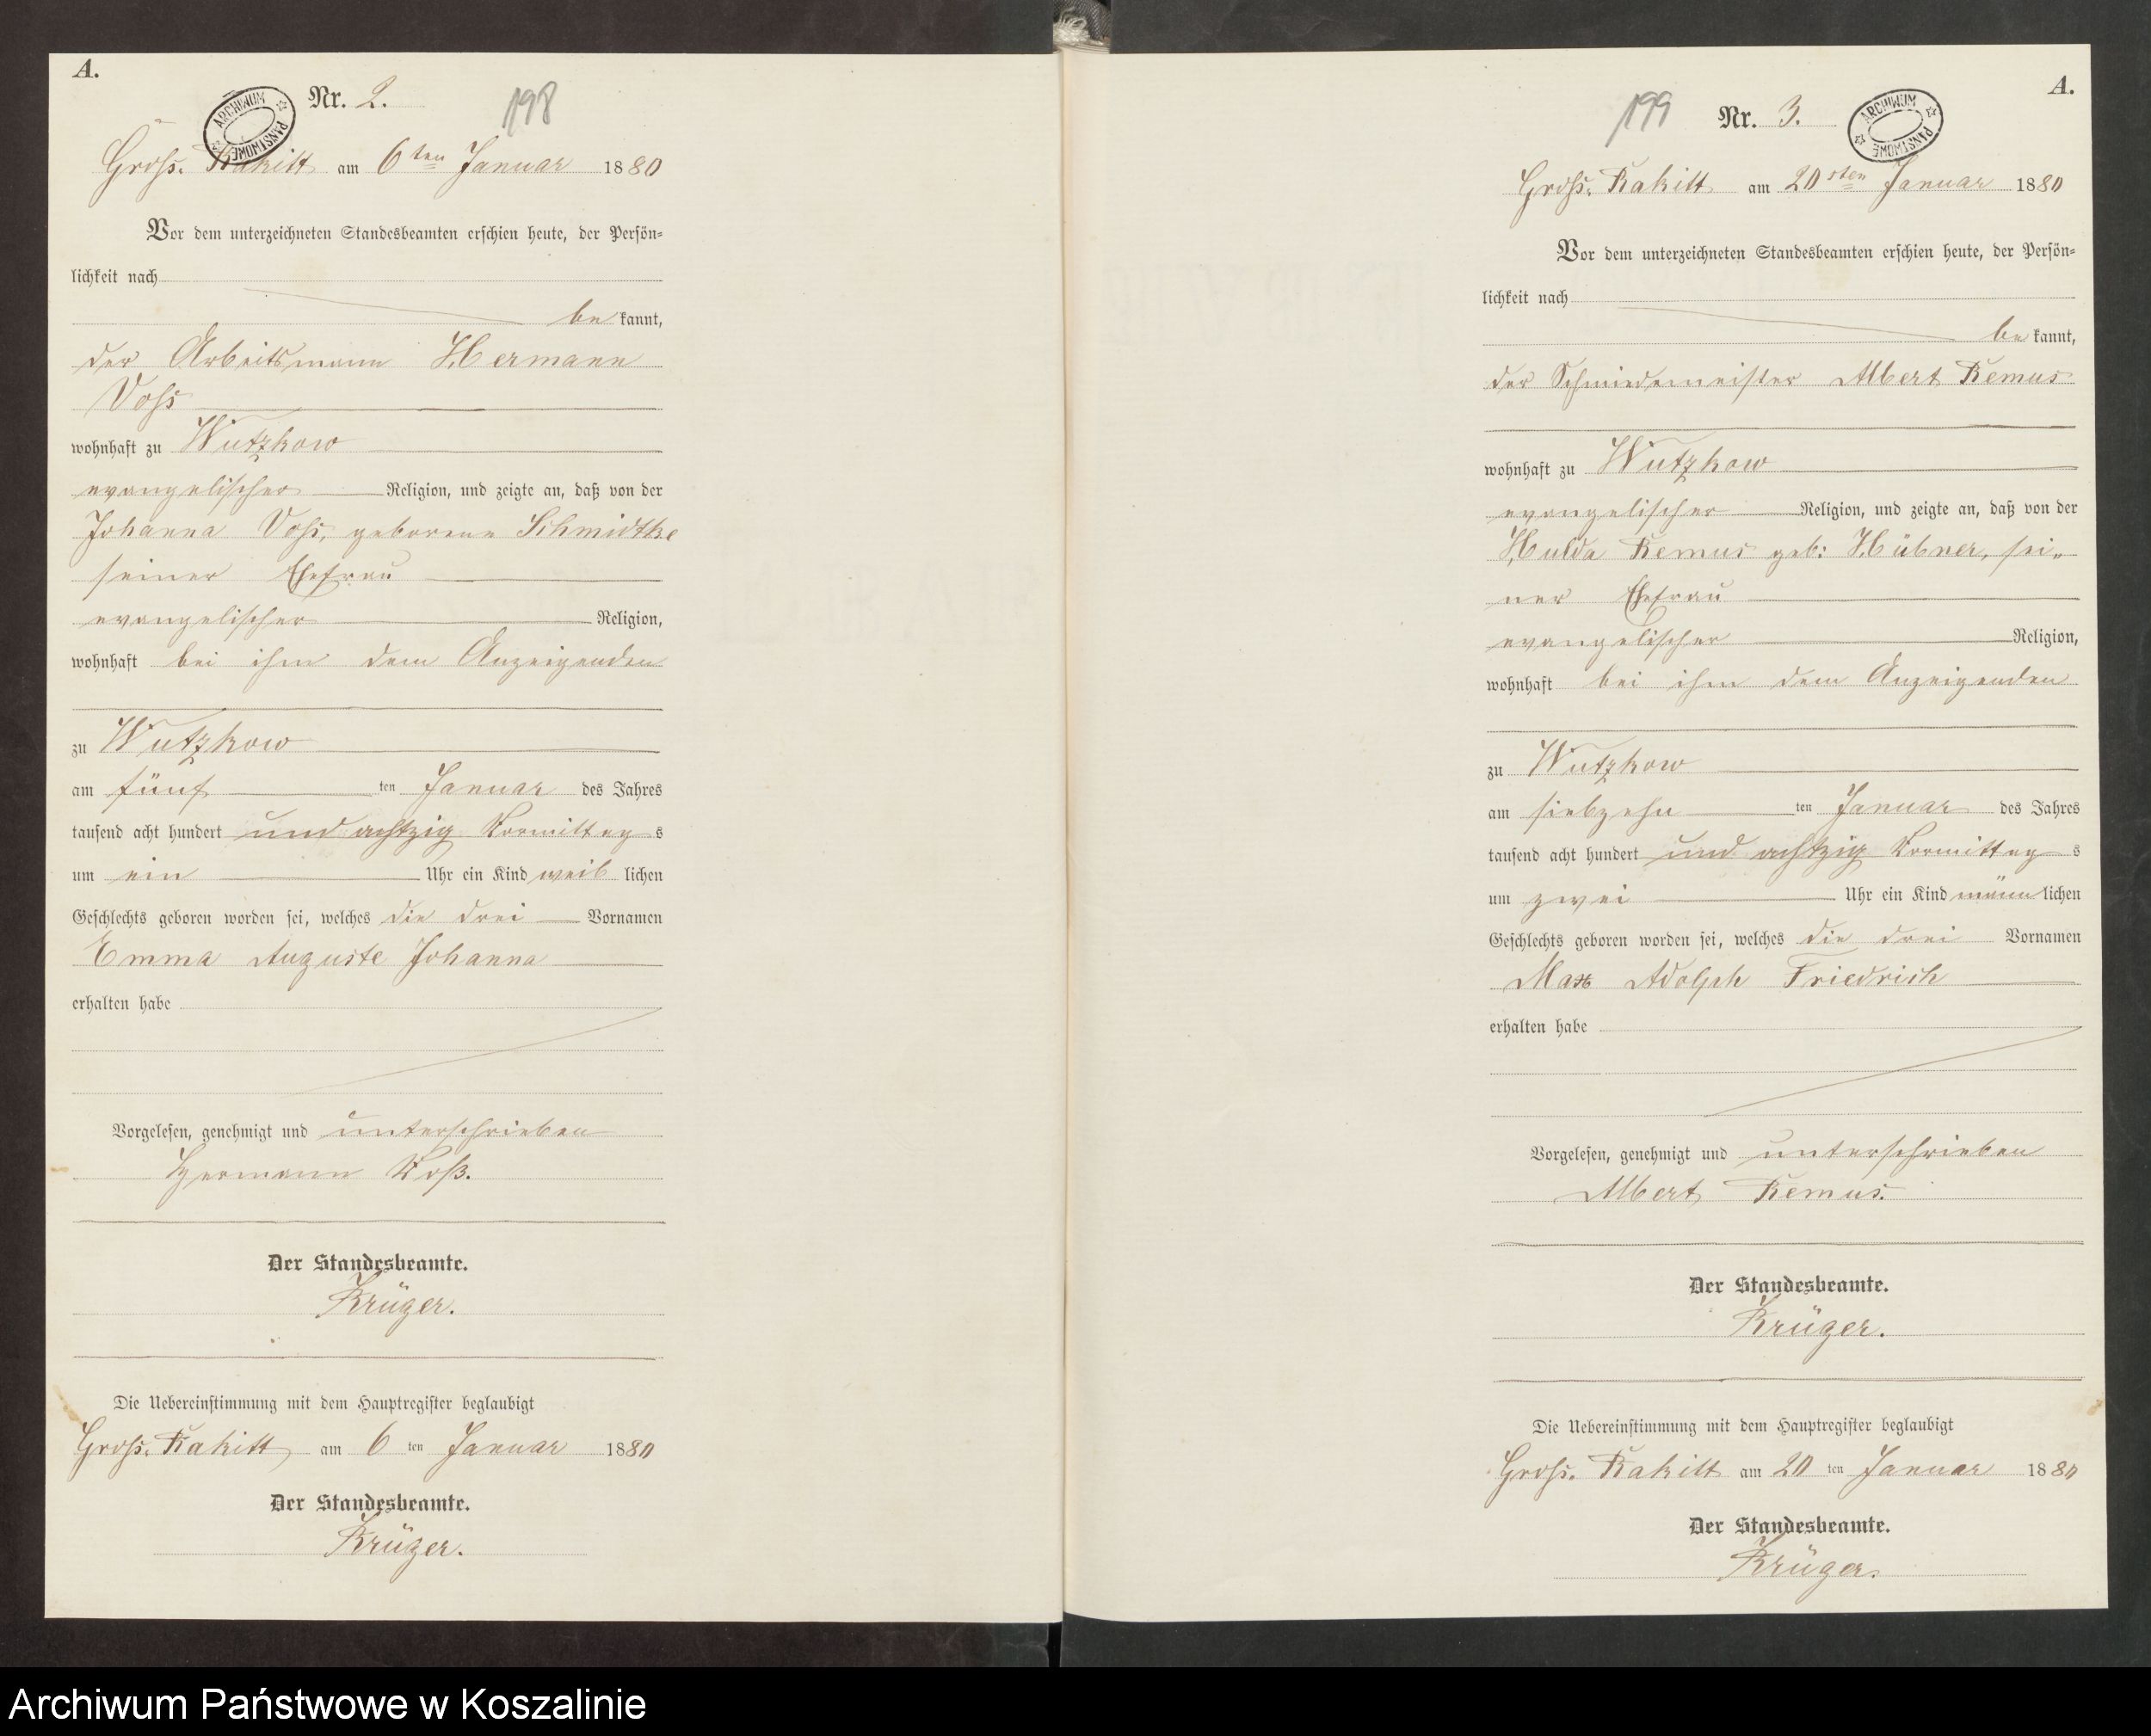 A.
Nr. 2.
198
ARCHIWUM PAŃSTWOWE
Groß. Rakitt am 6ten Januar 1880
Vor dem unterzeichneten Standesbeamten erschien heute, der Persön-
lichkeit nach
be kannt,
der Arbeitsmann Hermann
Voß
wohnhaft zu Wutzkow
evangelischer Religion, und zeigte an, daß von der
Johanna Voß, geborene Schmidtke
seiner Ehefrau
evangelischer Religion,
wohnhaft bei ihm dem Anzeigenden
zu Wutzkow
am fünf ten Januar des Jahres
tausend acht hundert und achtzig Vormittag s
um ein Uhr ein Kind weib lichen
Geschlechts geboren worden sei, welches die drei Vornamen
Emma Auguste Johanna
erhalten habe
Vorgelesen, genehmigt und unterschrieben
Hermann Voß.
Der Standesbeamte.
Krüger.
Die Uebereinstimmung mit dem Hauptregister beglaubigt
Groß. Rakitt am 6 ten Januar 1880
Der Standesbeamte.
Krüger.
A.
199
Nr. 3.
ARCHIWUM PAŃSTWOWE
Groß. Rakitt am 20sten Januar 1880
Vor dem unterzeichneten Standesbeamten erschien heute, der Persön-
lichkeit nach
be kannt,
der Schmiedemeister Albert Remus
wohnhaft zu Wutzkow
evangelischer Religion, und zeigte an, daß von der
Hulda Remus geb: Hübner, sei„
ner Ehefrau
evangelischer Religion,
wohnhaft bei ihm dem Anzeigenden
zu Wutzkow
am siebzehn ten Januar des Jahres
tausend acht hundert und achtzig Vormittag s
um zwei Uhr ein Kind männ lichen
Geschlechts geboren worden sei, welches die drei Vornamen
Max Adolph Friedrich
erhalten habe
Vorgelesen, genehmigt und unterschrieben
Albert Remus.
Der Standesbeamte.
Krüger.
Die Uebereinstimmung mit dem Hauptregister beglaubigt
Groß. Rakitt am 20 ten Januar 1880
Der Standesbeamte.
Krüger.
Archiwum Państwowe w Koszalinie